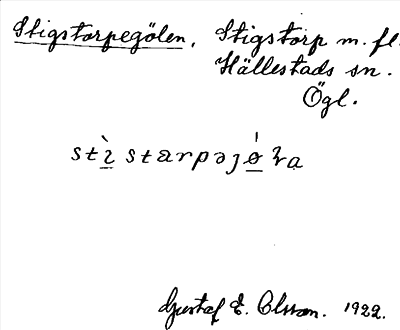 Stigstorpegölen, Stigstorp m. fl.
Hällestads sn.
Ögl.
Gustaf E. Olsson. 1922.